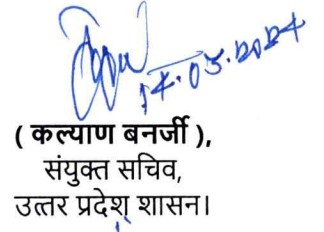 14.03.2024
( कल्याण बनर्जी ),
संयुक्त सचिव,
उत्तर प्रदेश शासन।